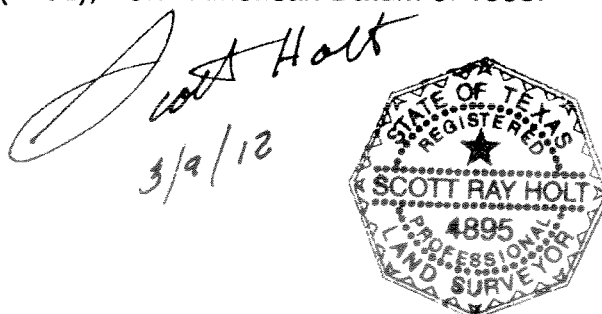 Scott Holt
3/9/12
STATE OF TEXAS
REGISTERED
SCOTT RAY HOLT
4895
PROFESSIONAL
LAND SURVEYOR